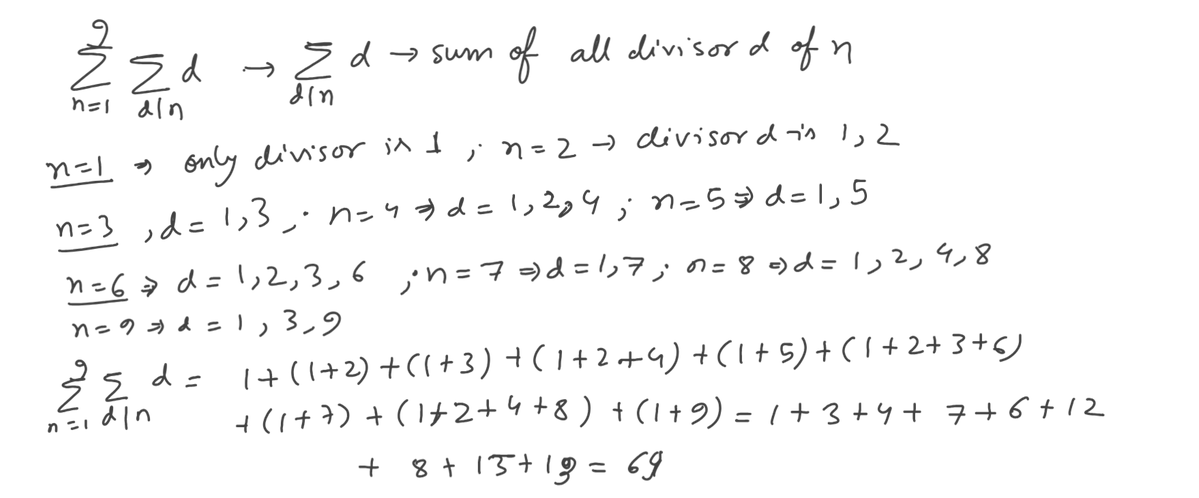 9
∑ ∑ d → ∑ d → sum of all divisor d of n
n=1 d|n d|n
n=1 ⇒ only divisor is 1 ; n=2 → divisor d is 1, 2
n=3 , d= 1,3 ; n=4 ⇒ d = 1,2,4 ; n=5 ⇒ d=1,5
n=6 ⇒ d = 1,2,3,6 ; n=7 ⇒ d=1,7 ; n=8 ⇒ d= 1, 2, 4,8
n=9 ⇒ d = 1 , 3,9
9
∑ ∑ d = 1+(1+2)+(1+3)+(1+2+4)+(1+5)+(1+2+3+6)
n=1 d|n +(1+7)+(1+2+4+8)+(1+9) = 1+3+4+7+6+12
+ 8+15+13 = 69